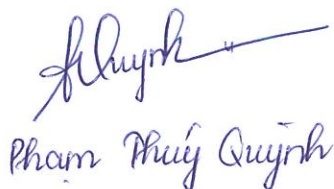 Quynh
Phạm Thuý Quỳnh